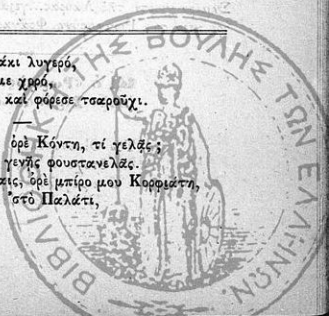 άκι λυγερό,
με χορό,
καὶ φόρεσε τσαροῦχι.
—
ὀρὲ Κόντη, τί γελᾷς;
γενῆς φουστανελᾶς.
αις, ὀρὲ μπίρο μου Κορφιάτη,
'στὸ Παλάτι,
ΒΙΒΛΙΟΘΗΚΗ ΤΗΣ ΒΟΥΛΗΣ ΤΩΝ ΕΛΛΗΝΩΝ